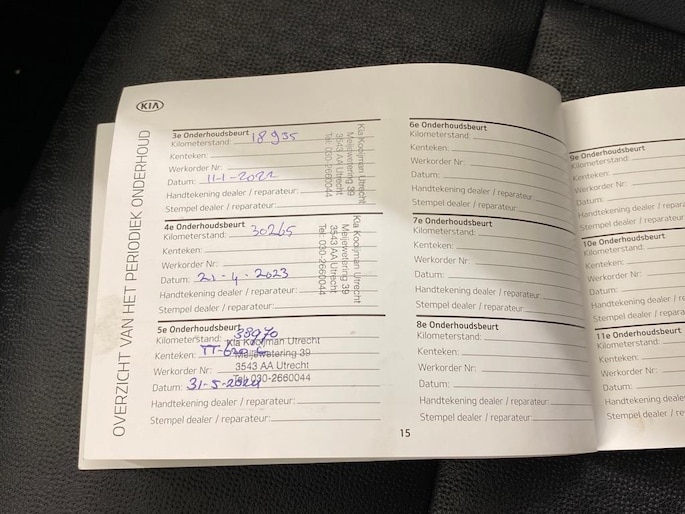 KIA
OVERZICHT VAN HET PERIODIEK ONDERHOUD
3e Onderhoudsbeurt
Kilometerstand: 18935
Kenteken:
Werkorder Nr:
Datum: 11-1-2022
Handtekening dealer / reparateur:
Stempel dealer / reparateur:
Kia Kooijman Utrecht
Meijewetering 39
3543 AA Utrecht
Tel: 030-2660044
4e Onderhoudsbeurt
Kilometerstand: 30265
Kenteken:
Werkorder Nr:
Datum: 21-4-2023
Handtekening dealer / reparateur:
Stempel dealer / reparateur:
Kia Kooijman Utrecht
Meijewetering 39
3543 AA Utrecht
Tel: 030-2660044
5e Onderhoudsbeurt
Kilometerstand: 38970
Kenteken:
Werkorder Nr:
Datum: 31-5-2024
Handtekening dealer / reparateur:
Stempel dealer / reparateur:
Kia Kooijman Utrecht
Meijewetering 39
3543 AA Utrecht
Tel: 030-2660044
6e Onderhoudsbeurt
Kilometerstand:
Kenteken:
Werkorder Nr:
Datum:
Handtekening dealer / reparateur:
Stempel dealer / reparateur:
7e Onderhoudsbeurt
Kilometerstand:
Kenteken:
Werkorder Nr:
Datum:
Handtekening dealer / reparateur:
Stempel dealer / reparateur:
8e Onderhoudsbeurt
Kilometerstand:
Kenteken:
Werkorder Nr:
Datum:
Handtekening dealer / reparateur:
Stempel dealer / reparateur:
15
9e Onderhoudsbeurt
Kilometerstand:
Kenteken:
Werkorder Nr:
Datum:
Handtekening dealer / reparatu
Stempel dealer / repara
10e Onderhoudsbeurt
Kilometerstand:
Kenteken:
Werkorder Nr:
Datum:
Handtekening dealer / r
Stempel dealer / repara
11e Onderhoudsbeurt
Kilometerstand:
Kenteken:
Werkorder Nr:
Datum:
Handtekening dealer
Stempel dealer / re